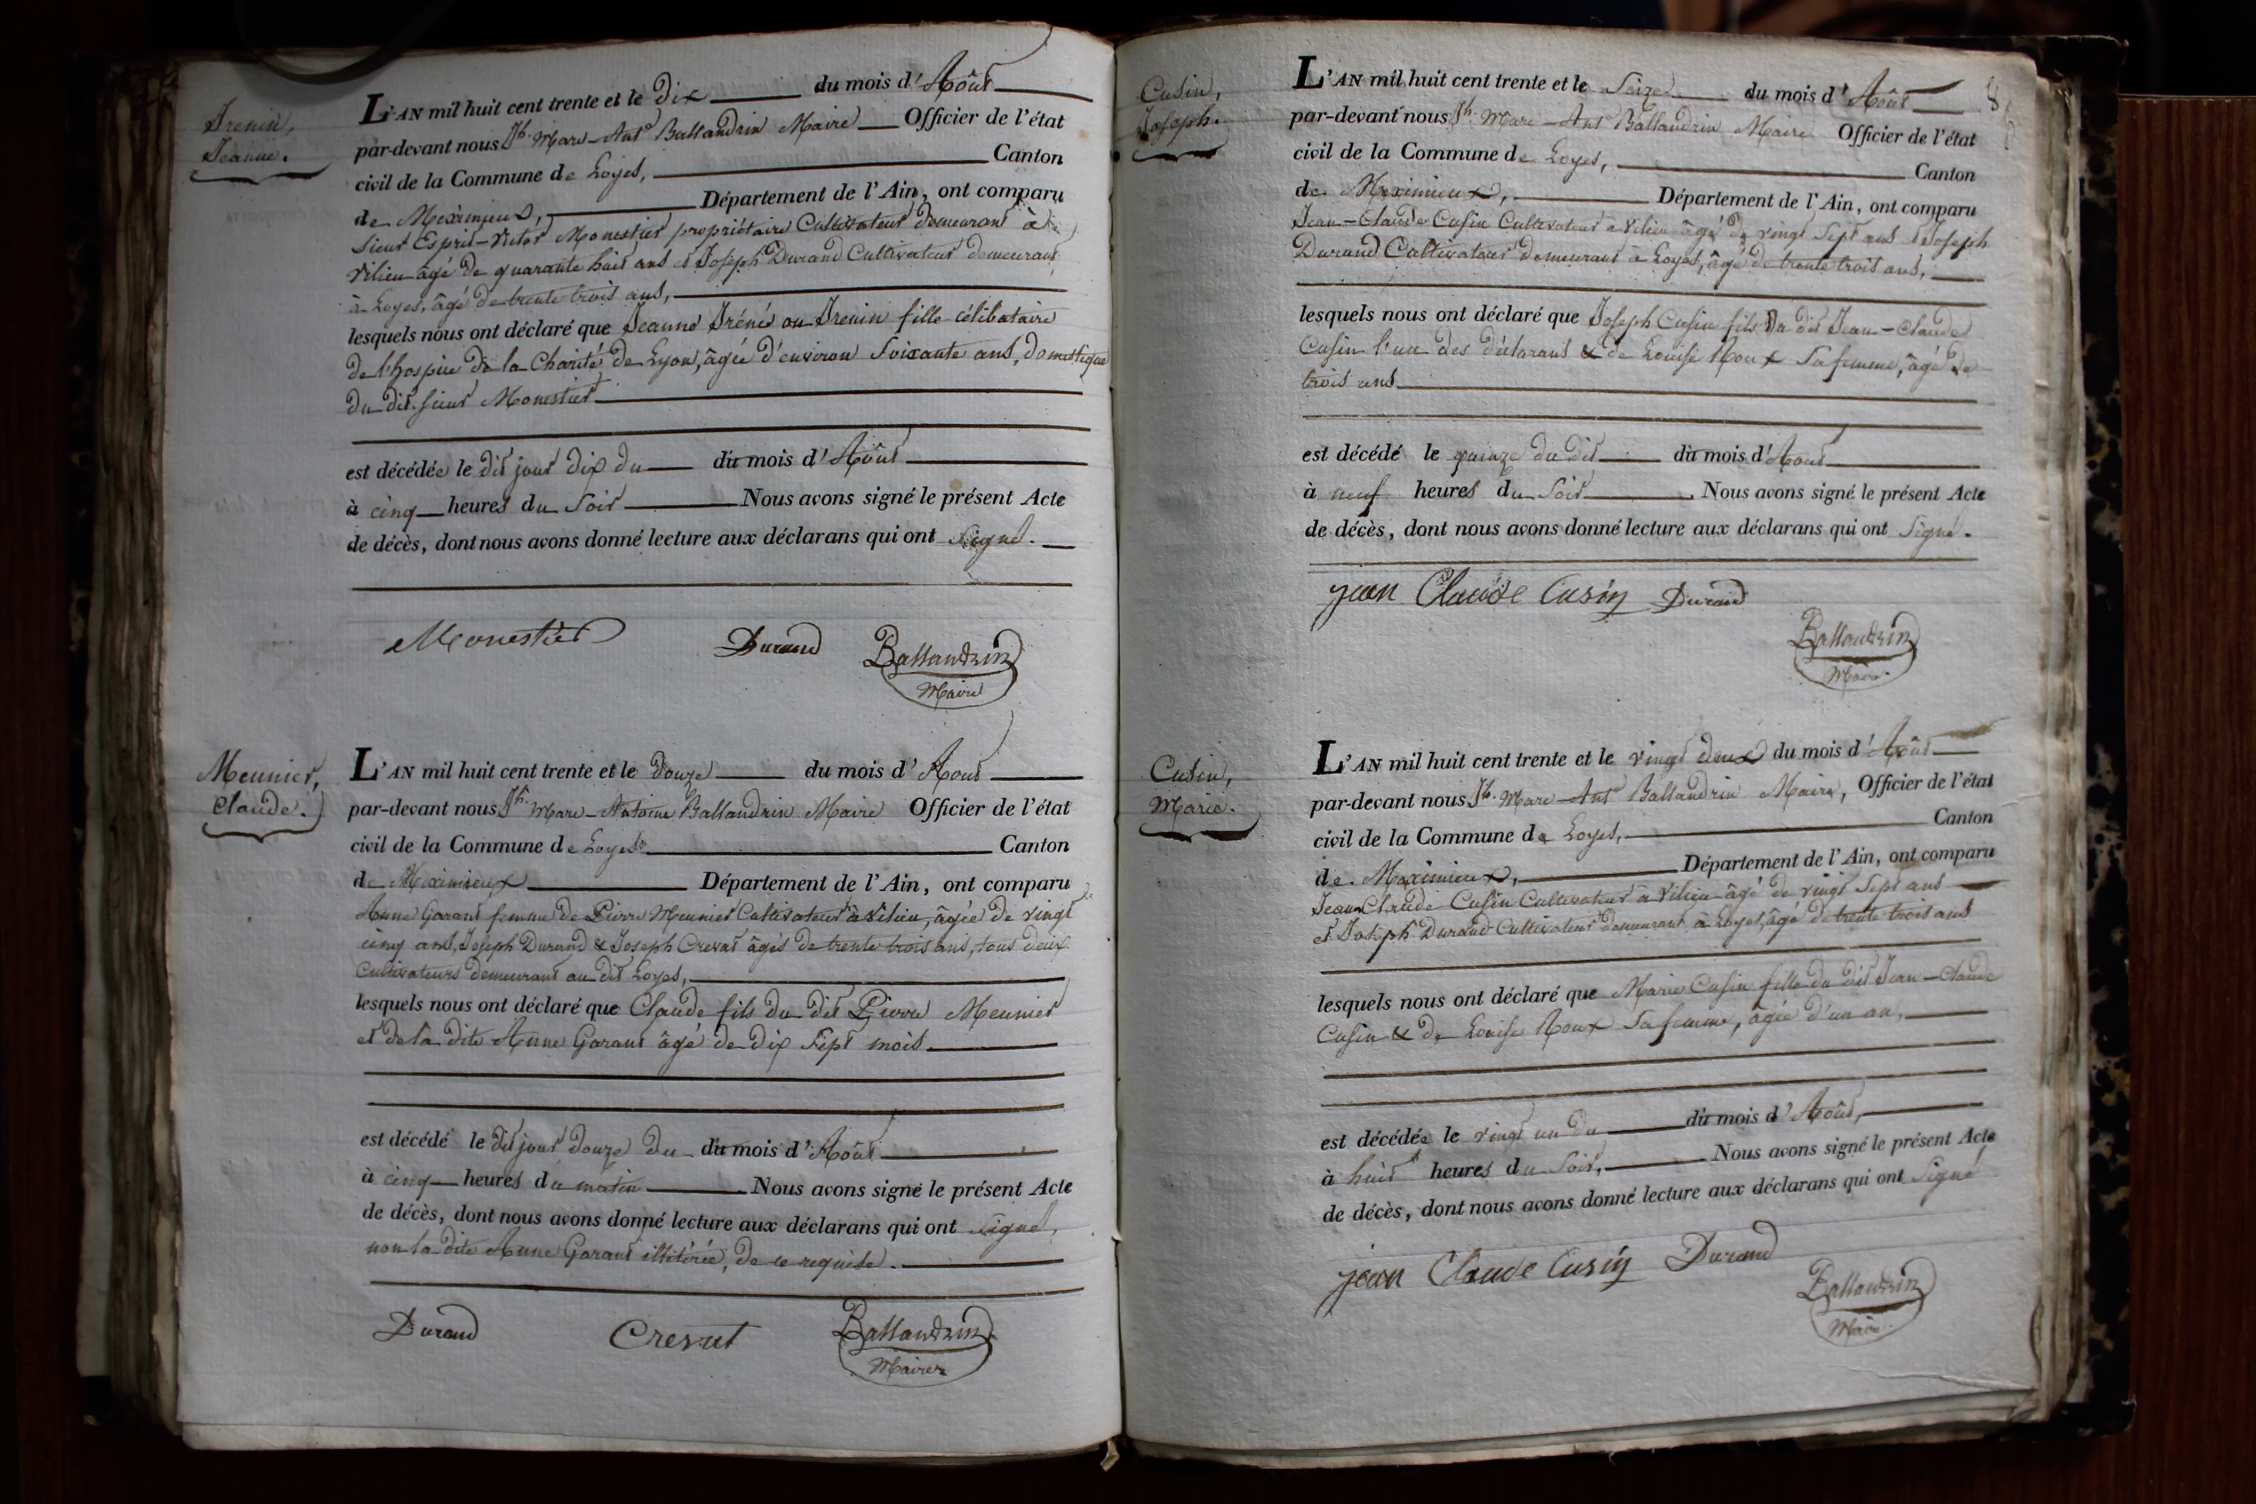 Irenin,
Jeanne.
L'AN mil huit cent trente et le dix du mois d'Août
par-devant nous Jh. Marc-Ant.e Ballandrin Maire Officier de l'état
civil de la Commune de Loyes, Canton
de Meximieux, Département de l'Ain, ont comparu
Sieur Esprit-Victor Monestier propriétaire Cultivateur demeurant à
Vilieu âgé de quarante huit ans et Joseph Durand Cultivateur demeurant
à Loyes, âgé de trente trois ans,
lesquels nous ont déclaré que Jeanne Iréné ou Irenin fille célibataire
de l'hospice de la Charité de Lyon, âgée d'environ Soixante ans, domestique
du dit sieur Monestier
est décédée le dit jour dix du du mois d'Août
à cinq heures du Soir Nous avons signé le présent Acte
de décès, dont nous avons donné lecture aux déclarans qui ont signé.
Monestier Durand Ballandrin
Maire
Meunier,
Claude.
L'AN mil huit cent trente et le douze du mois d'Août
par-devant nous Jh. Marc-Antoine Ballandrin Maire Officier de l'état
civil de la Commune de Loyes Canton
de Meximieux Département de l'Ain, ont comparu
Anne Garant femme de Pierre Meunier Cultivateur à Vilieu, âgée de vingt
cinq ans, Joseph Durand & Joseph Crevat âgés de trente trois ans, tous deux
Cultivateurs demeurant au dit Loyes,
lesquels nous ont déclaré que Claude fils du dit Pierre Meunier
et de la dite Anne Garant âgé de dix Sept mois
est décédé le dit jour douze du du mois d'Août
à cinq heures du matin Nous avons signé le présent Acte
de décès, dont nous avons donné lecture aux déclarans qui ont signé,
non la dite Anne Garant illitérée, de ce requise.
Durand Crevat Ballandrin
Maire
Cusin,
Joseph.
L'AN mil huit cent trente et le Seize du mois d'Août 8
par-devant nous Jh. Marc-Ant.e Ballandrin Maire Officier de l'état
civil de la Commune de Loyes, Canton
de Meximieux, Département de l'Ain, ont comparu
Jean-Claude Cusin Cultivateur à Vilieu âgé de vingt Sept ans et Joseph
Durand Cultivateur demeurant à Loyes, âgé de trente trois ans,
lesquels nous ont déclaré que Joseph Cusin fils du dit Jean-Claude
Cusin l'un des déclarans & de Louise Roux Sa femme, âgé de
trois ans
est décédé le quinze du dit du mois d'Août
à neuf heures du Soir Nous avons signé le présent Acte
de décès, dont nous avons donné lecture aux déclarans qui ont Signé.
jean Claude Cusin Durand
Ballandrin
Maire
Cusin,
Marie.
L'AN mil huit cent trente et le vingt deux du mois d'Août
par-devant nous Jh. Marc-Ant.e Ballandrin Maire, Officier de l'état
civil de la Commune de Loyes, Canton
de Meximieux, Département de l'Ain, ont comparu
Jean Claude Cusin Cultivateur à Vilieu âgé de vingt Sept ans
et Joseph Durand Cultivateur demeurant à Loyes, âgé de trente trois ans
lesquels nous ont déclaré que Marie Cusin fille du dit Jean-Claude
Cusin & de Louise Roux Sa femme, âgée d'un an,
est décédée le vingt un du du mois d'Août,
à huit heures du Soir, Nous avons signé le présent Acte
de décès, dont nous avons donné lecture aux déclarans qui ont Signé
jean Claude Cusin Durand
Ballandrin
Maire